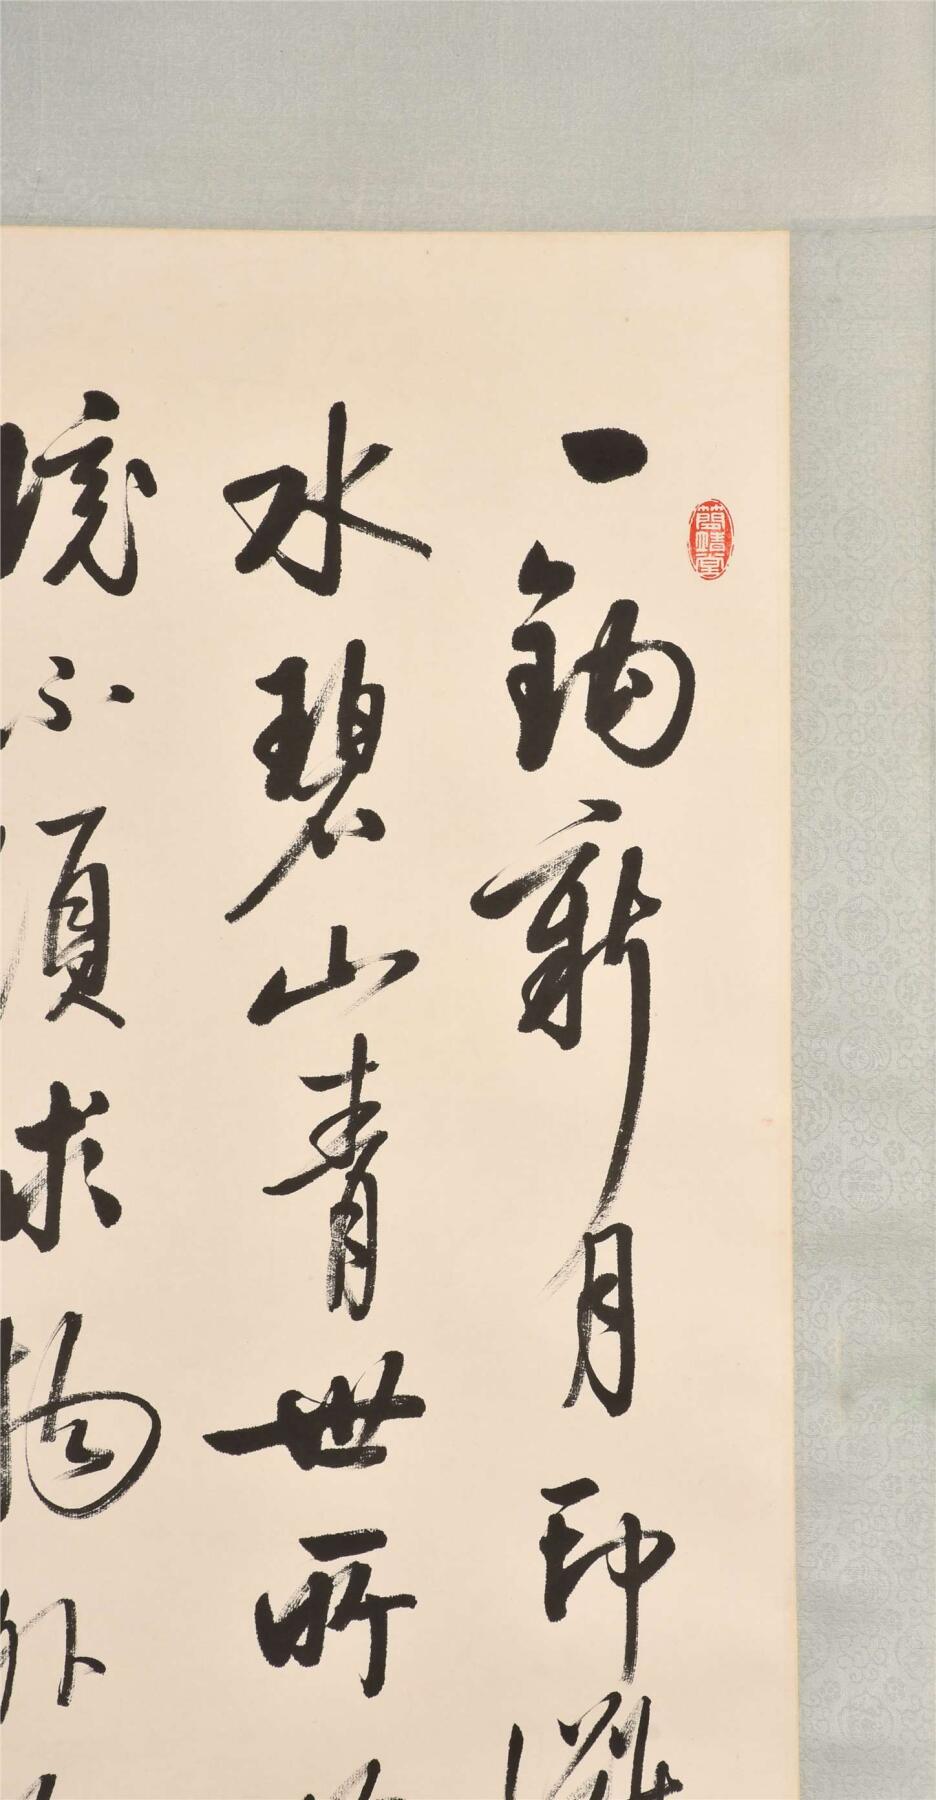 一鉤新月印
水碧山青世所
境不須求物外
簡靖堂